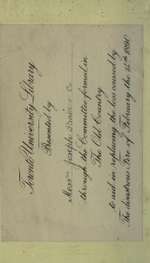 Toronto University Library
Presented by
Messrs Joseph & Co
through the Committee formed in
The Old Country
to aid in replacing the loss caused by
The disastrous Fire of February the 14th 1890